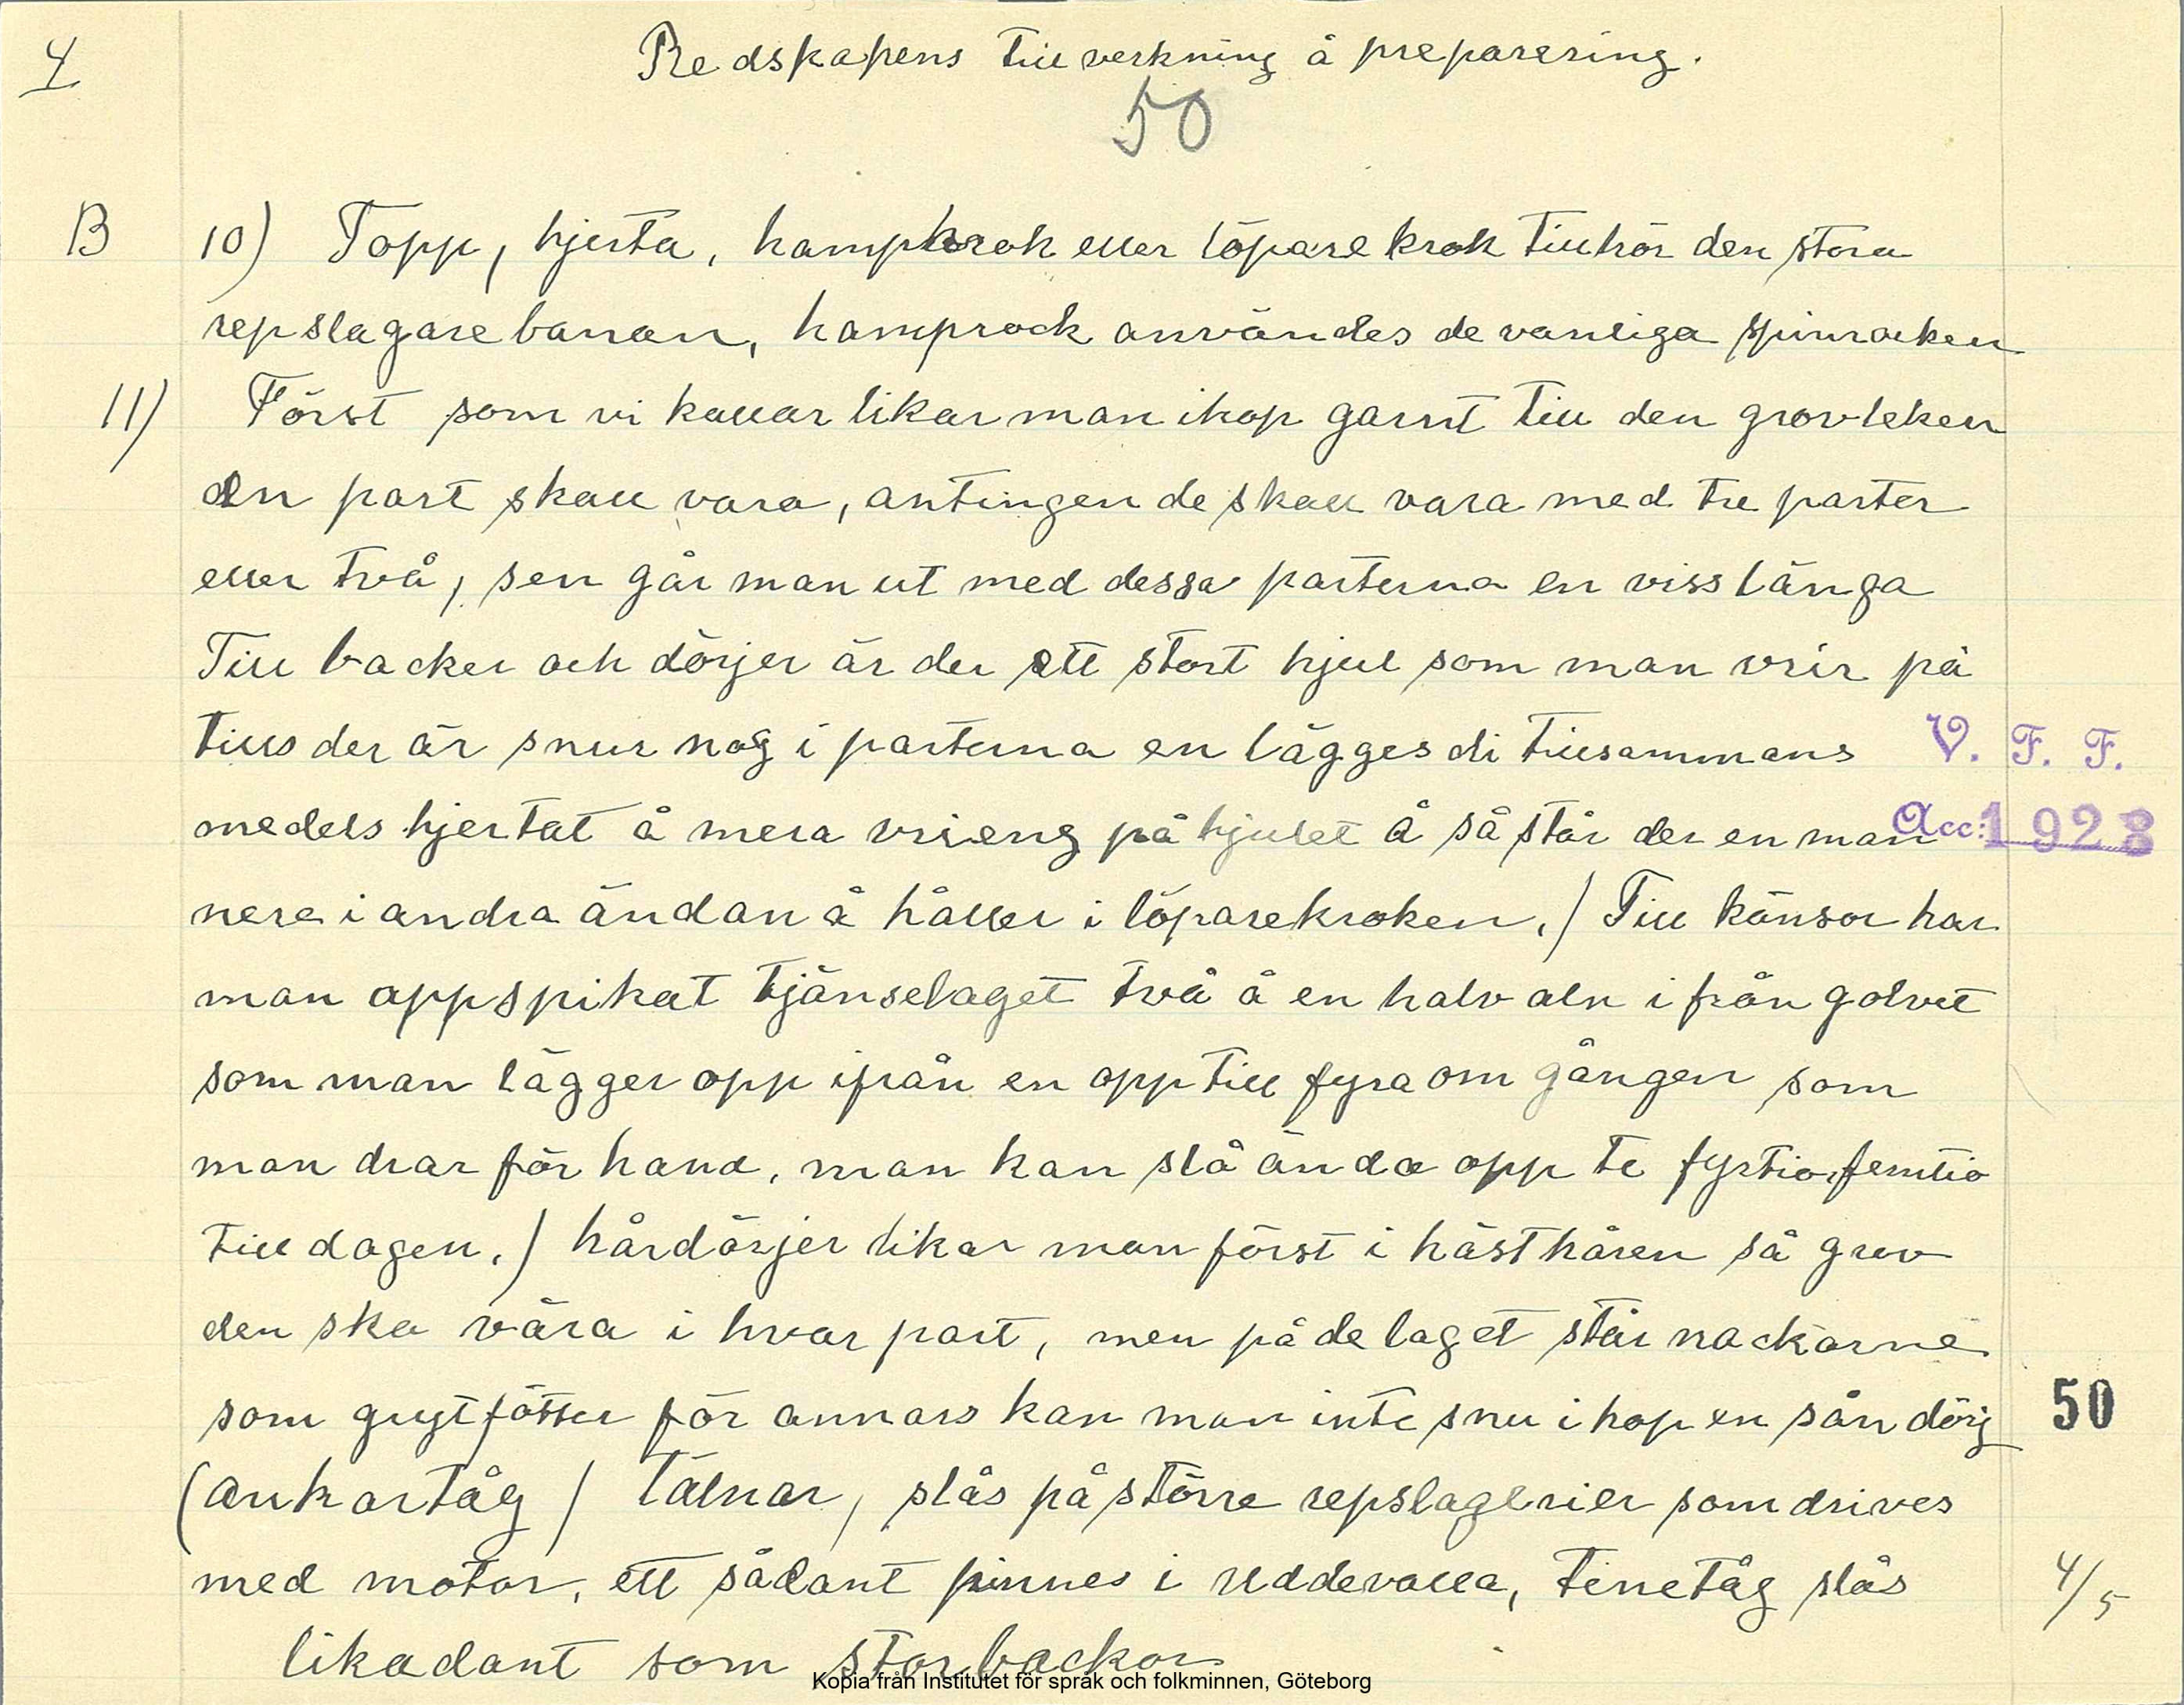 4
Redskapens tillverkning å preparering.
50
B 10) Topp, hjerta, hampkrok eller löparekrok tillhör den stora
repslagarebanan, hamprock användes de vanliga spinrocken
11) Först som vi kallar likar man ihop garnt till den grovleken
den part skall vara, antingen de skall vara med tre parter
eller två, sen går man ut med dessa parterna en viss länga
Till backer och dörjer är der ett stort hjul som man vrir på
tills der är snur nog i parterna en lägges di tillsammans
medels hjertat å mera vrieng på hjulet å så står der en man
V. F. F.
Acc: 1923
nere i andra ändan å håller i löparekroken. / Till känsor har
man oppspikat tjänselaget två å en halv aln ifrån golvet
som man lägger opp ifrån en opp till fyra om gången som
man drar för hand, man kan slå ända opp te fyrtio, femtio
till dagen. / hårdörjer likar man först i hästhåren så grov
den ska våra i hvar part, men på de laget står nackarne
som grytfötter för annars kan man inte snu ihop en sån dörj
50
(ankartåg / tälnar, slås på större repslagerier som drives
med motor, ett sådant finnes i Uddevalla, tinetåg slås
4/5
likadant som storbackor
Kopia från Institutet för språk och folkminnen, Göteborg